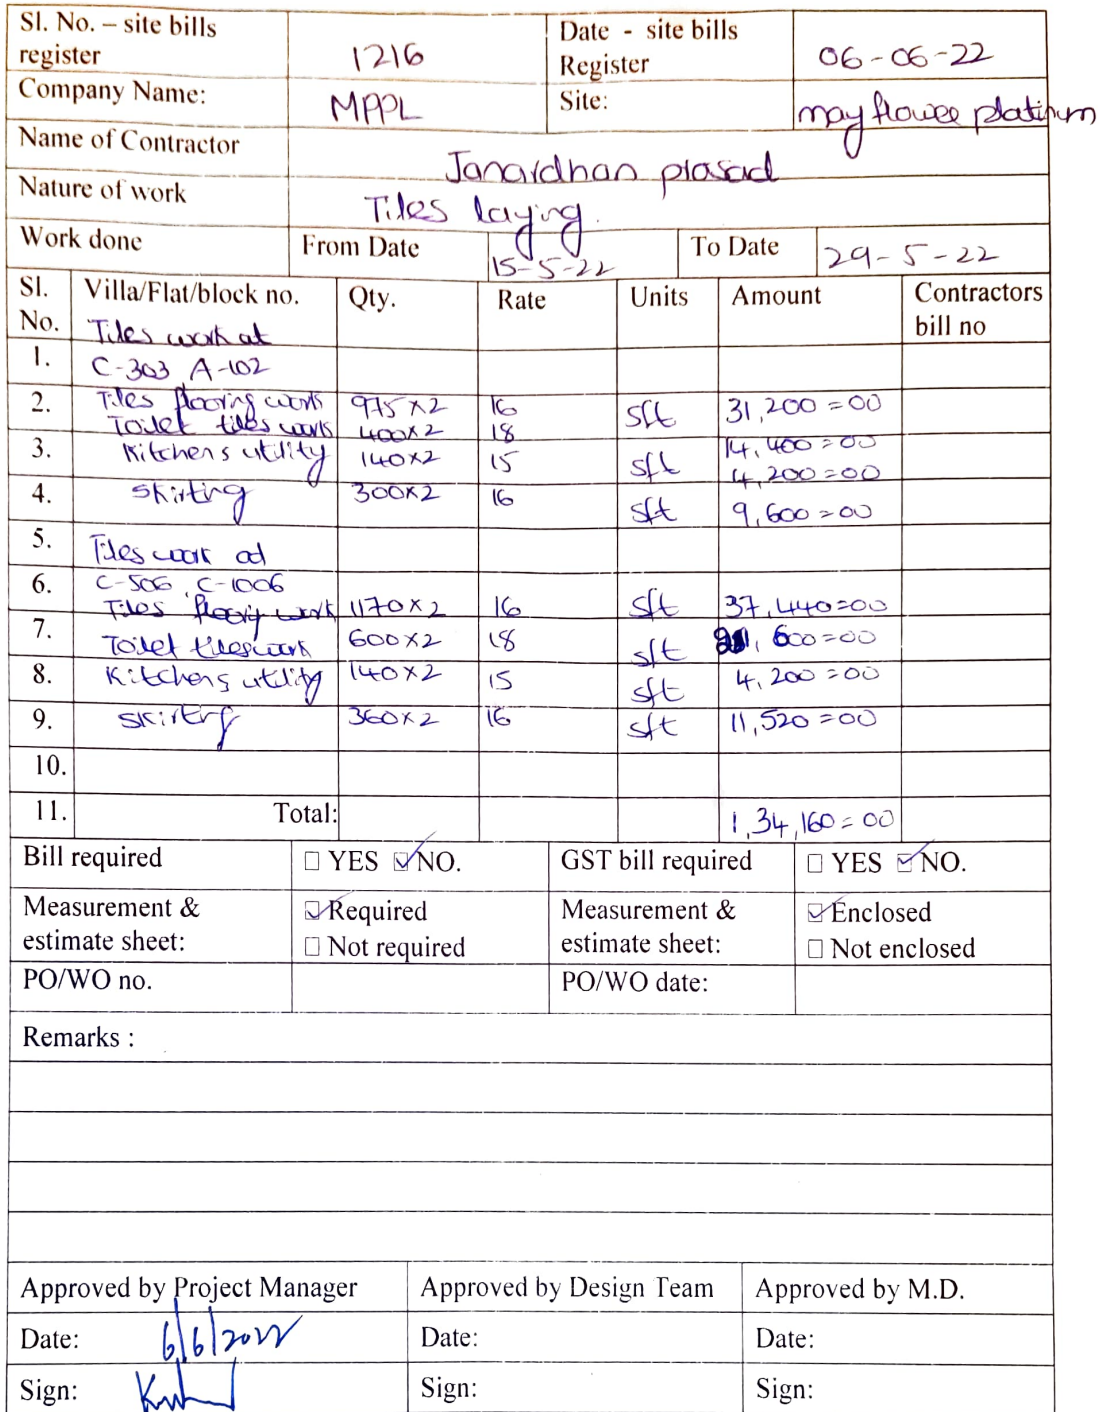 Sl. No. – site bills register 1216 Date - site bills Register 06-06-22
Company Name: MPPL Site: may flower platinum
Name of Contractor Janardhan prasad
Nature of work Tiles laying.
Work done From Date 15-5-22 To Date 29-5-22
Sl. No. Villa/Flat/block no. Qty. Rate Units Amount Contractors bill no
Tiles work at
1. C-303 A-102
2. Tiles flooring work 975×2 16 sft 31,200=00
Toilet tiles work 400×2 18 14,400=00
3. Kitchen s utility 140×2 15 sft 4,200=00
4. Skirting 300×2 16 sft 9,600=00
5. Tiles work at
6. C-506, C-1006
Tiles flooring work 1170×2 16 sft 37,440=00
7. Toilet tiles work 600×2 18 sft 21,600=00
8. Kitchen s utility 140×2 15 sft 4,200=00
9. Skirting 360×2 16 sft 11,520=00
10.
11. Total: 1,34,160=00
Bill required ☐ YES ☑ NO. GST bill required ☐ YES ☑ NO.
Measurement & estimate sheet: ☑ Required ☐ Not required Measurement & estimate sheet: ☑ Enclosed ☐ Not enclosed
PO/WO no. PO/WO date:
Remarks :
Approved by Project Manager Approved by Design Team Approved by M.D.
Date: 6/6/2022 Date: Date:
Sign: Sign: Sign: